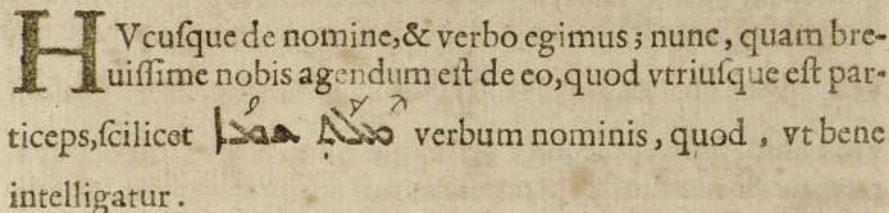 HVcuſque de nomine,& verbo egimus; nunc, quam bre-
uiſſime nobis agendum eſt de eo,quod vtriuſque eſt par-
ticeps,ſcilicet verbum nominis, quod, vt bene
intelligatur.